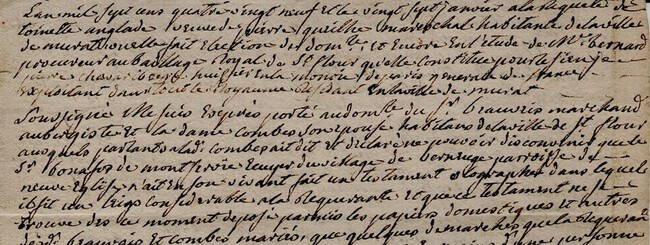 L'an mil sept cens quatre vingt neuf et le vingt sept janvier a la Requete de
toinette anglade veuve de pierre marechal habitante de la ville
de murat ou elle fait Election de dom.le et Encore En l'étude de M.e bernard
procureur au baillage Royal de S.t flour qu'elle constitue pour le sien je
pierre huissier En la monoie de paris general de france
Exploitant dans tout le Royaume Residant En la ville de murat
Soussigné Me suis Exprès porté au dom.le du S.r beauvais marchand
aubergiste Et la dame combes son epouse habitans de la ville de S.t flour
auxquels parlant a la d. combes ai dit et declare ne pouvoir disconvenir que le
S.r de montservie Ecuyer du village de parroisse de
neuve Eglise n'ait En son vivant fait un testament olographe dans lequel
il fit un legs considerable a la Requerante Et que ce testament ne se
trouve des ce moment deposé parmis les papiers domestiques et autres
beauvais et combes mariés, que quelques demarches que la Requerante
personne